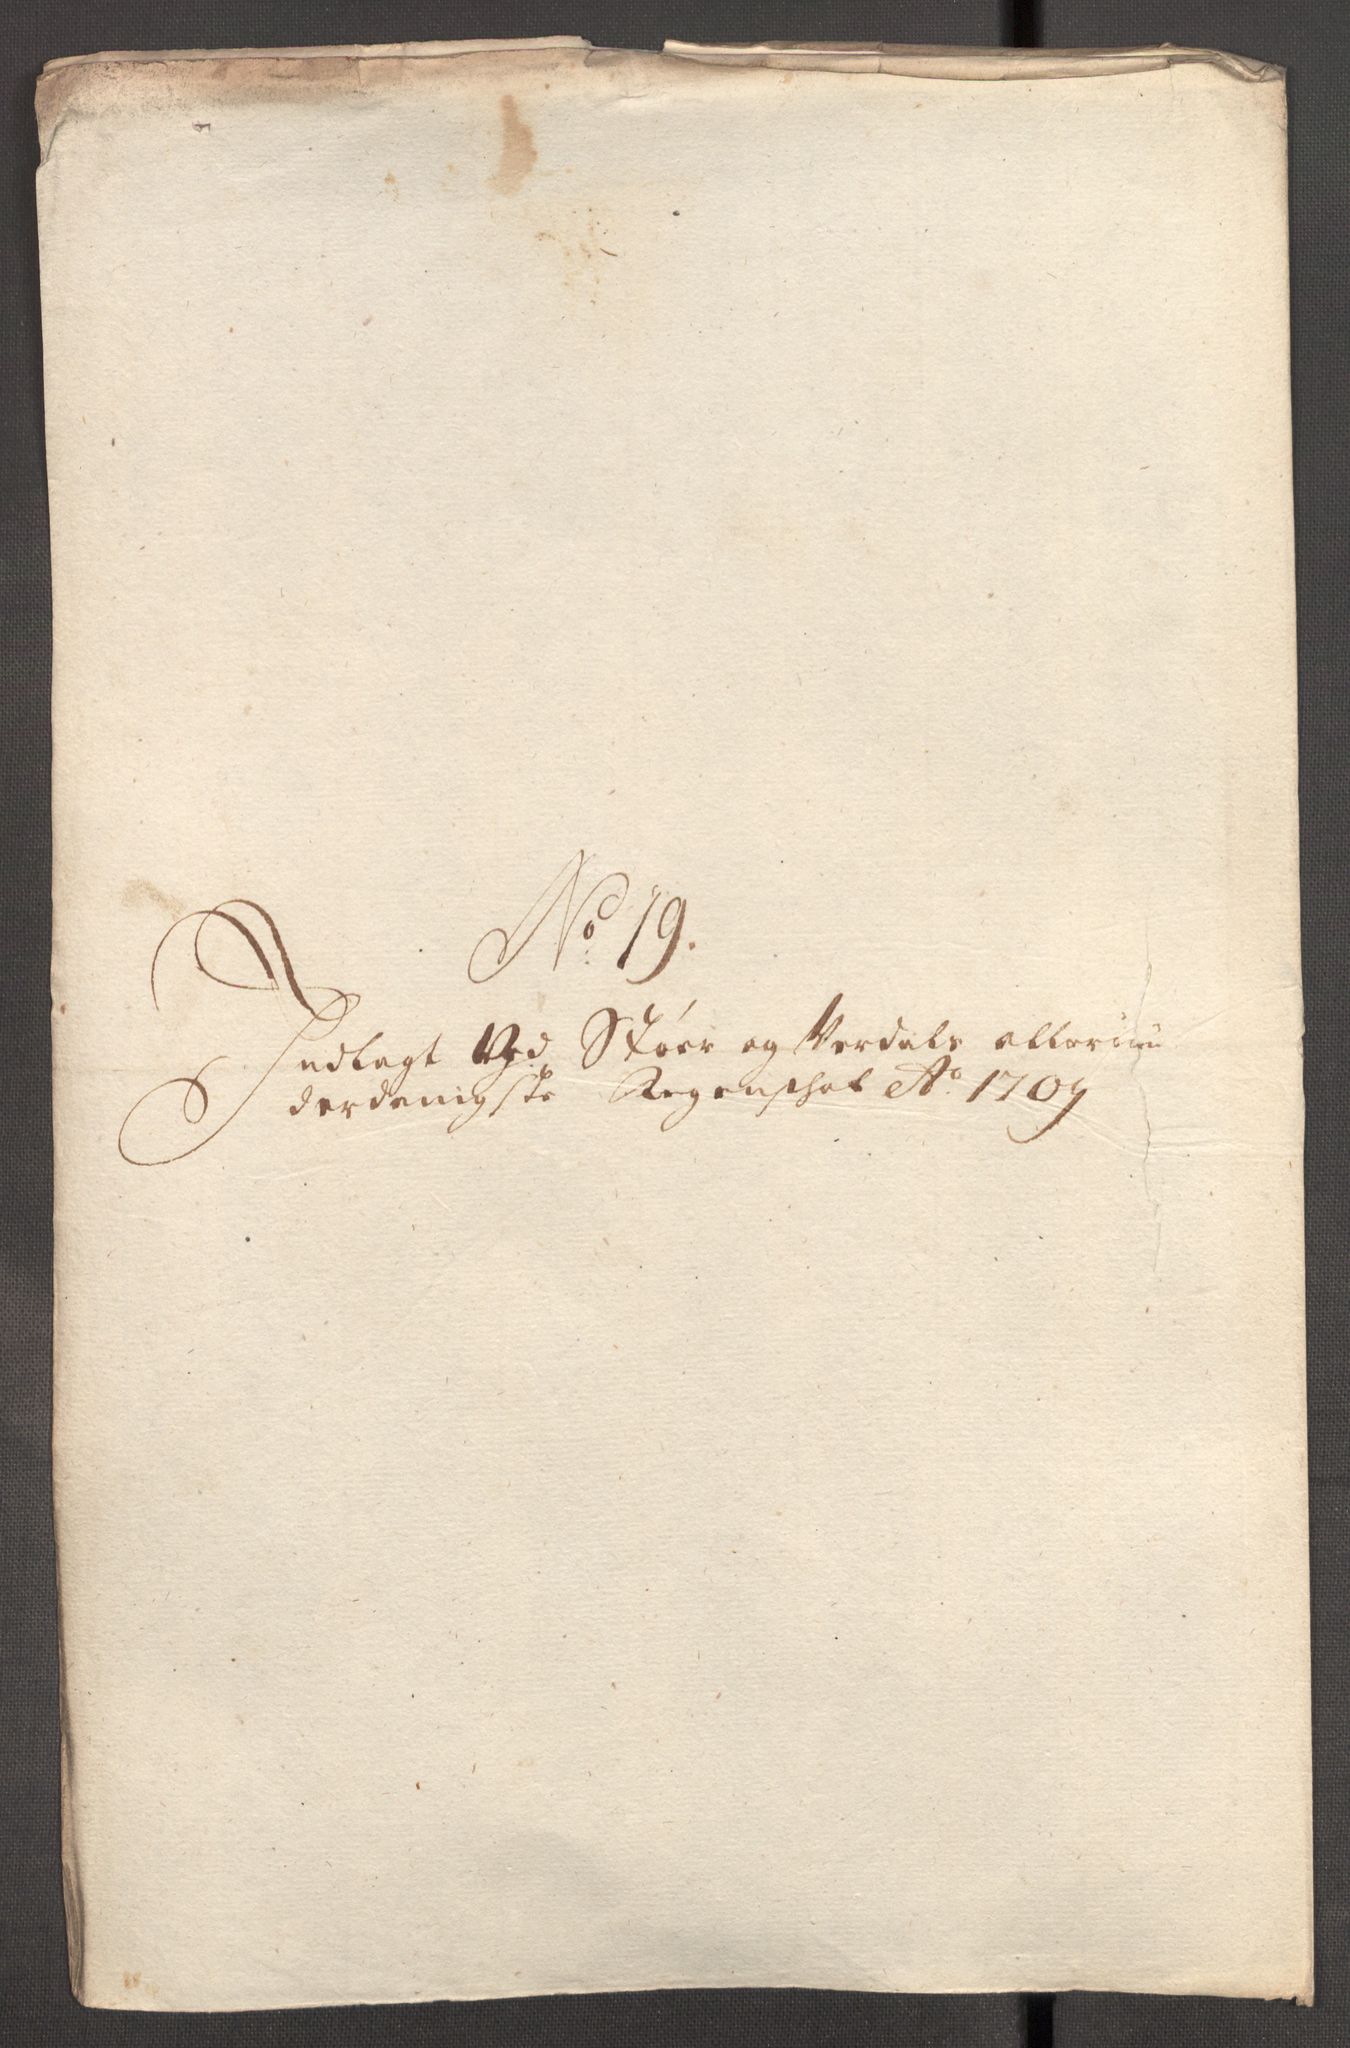 No 19.
Indlagt Ved Støer og Verdals allerun
derdanigste Regenschab Ao 1709